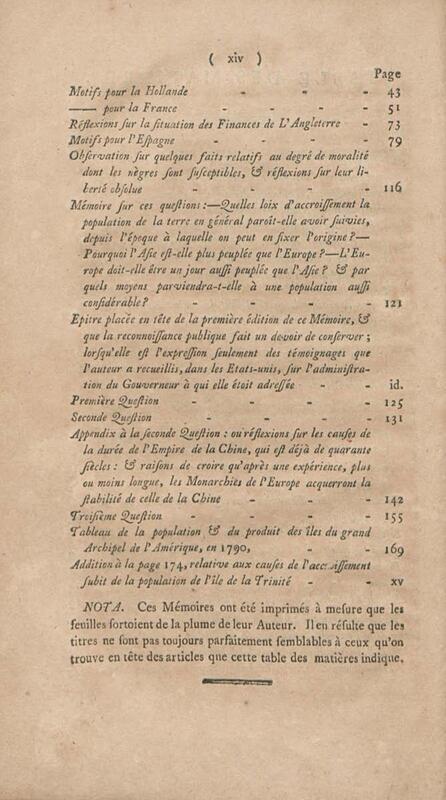 ( xiv )
Page
Motifs pour la Hollande - - - 43
—— pour la France - - - - 51
Réflexions sur la situation des Finances de L'Angleterre - 73
Motifs pour l'Espagne - - - - 79
Observation sur quelques faits relatifs au degré de moralité
dont les nègres sont susceptibles, & réflexions sur leur li-
berté absolue - - - - - 116
Mémoire sur ces questions :—Quelles loix d'accroissement la
population de la terre en général paroît-elle avoir suivies,
depuis l'époque à laquelle on peut en fixer l'origine ?—
Pourquoi l'Asie est-elle plus peuplée que l'Europe ?—L'Eu-
rope doit-elle être un jour aussi peuplée que l'Asie ? & par
quels moyens parviendra-t-elle à une population aussi
considérable ? - - - - 121
Epitre placée en tête de la première édition de ce Mémoire, &
que la reconnoissance publique fait un devoir de conserver ;
lorsqu'elle est l'expression seulement des témoignages que
l'auteur a recueillis, dans les Etats-unis, sur l'administra-
tion du Gouverneur à qui elle étoit adressée - - id.
Première Question - - - - 125
Seconde Question - - - - 131
Appendix à la seconde Question : ou réflexions sur les causes de
la durée de l'Empire de la Chine, qui est déjà de quarante
siècles : & raisons de croire qu'après une expérience, plus
ou moins longue, les Monarchies de l'Europe acquerront la
stabilité de celle de la Chine - - - 142
Troisième Question - - - - 155
Tableau de la population & du produit des îles du grand
Archipel de l'Amérique, en 1790, - - - 169
Addition à la page 174, relative aux causes de l'accroissement
subit de la population de l'île de la Trinité - - xv
NOTA. Ces Mémoires ont été imprimés à mesure que les
feuilles sortoient de la plume de leur Auteur. Il en résulte que les
titres ne sont pas toujours parfaitement semblables à ceux qu'on
trouve en tête des articles que cette table des matières indique.